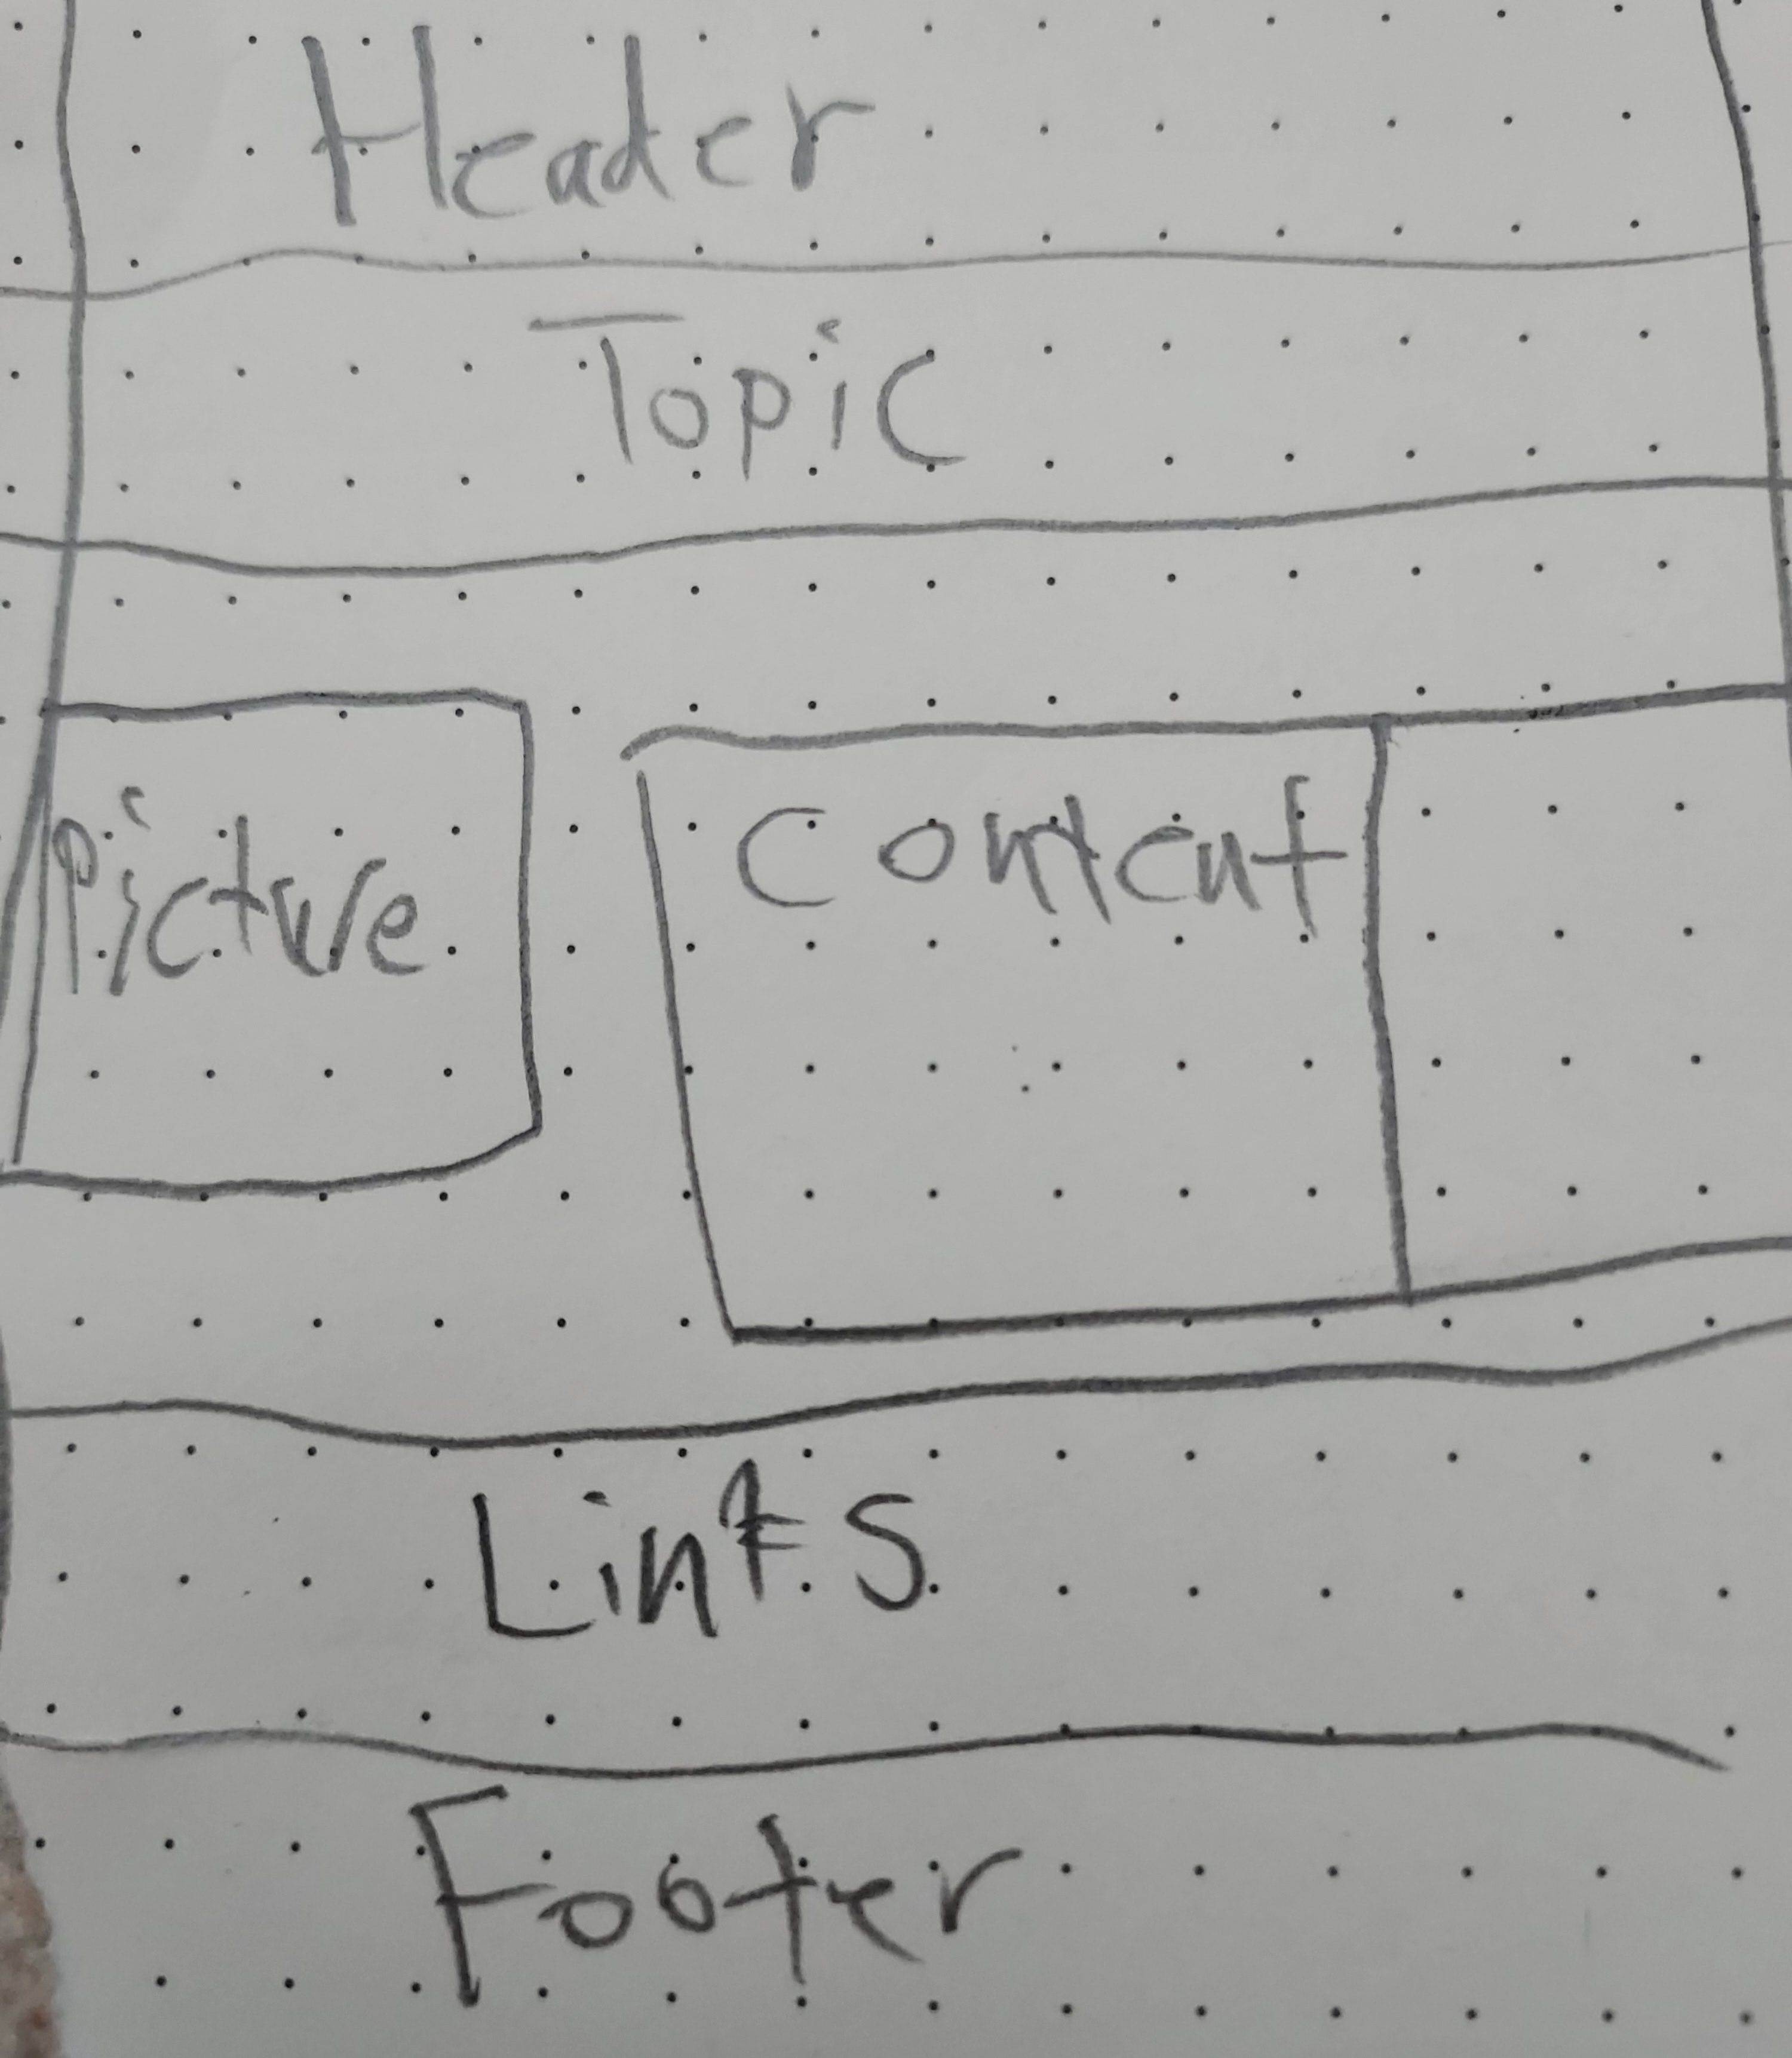 Header
Topic
Picture
Content
Links
Footer